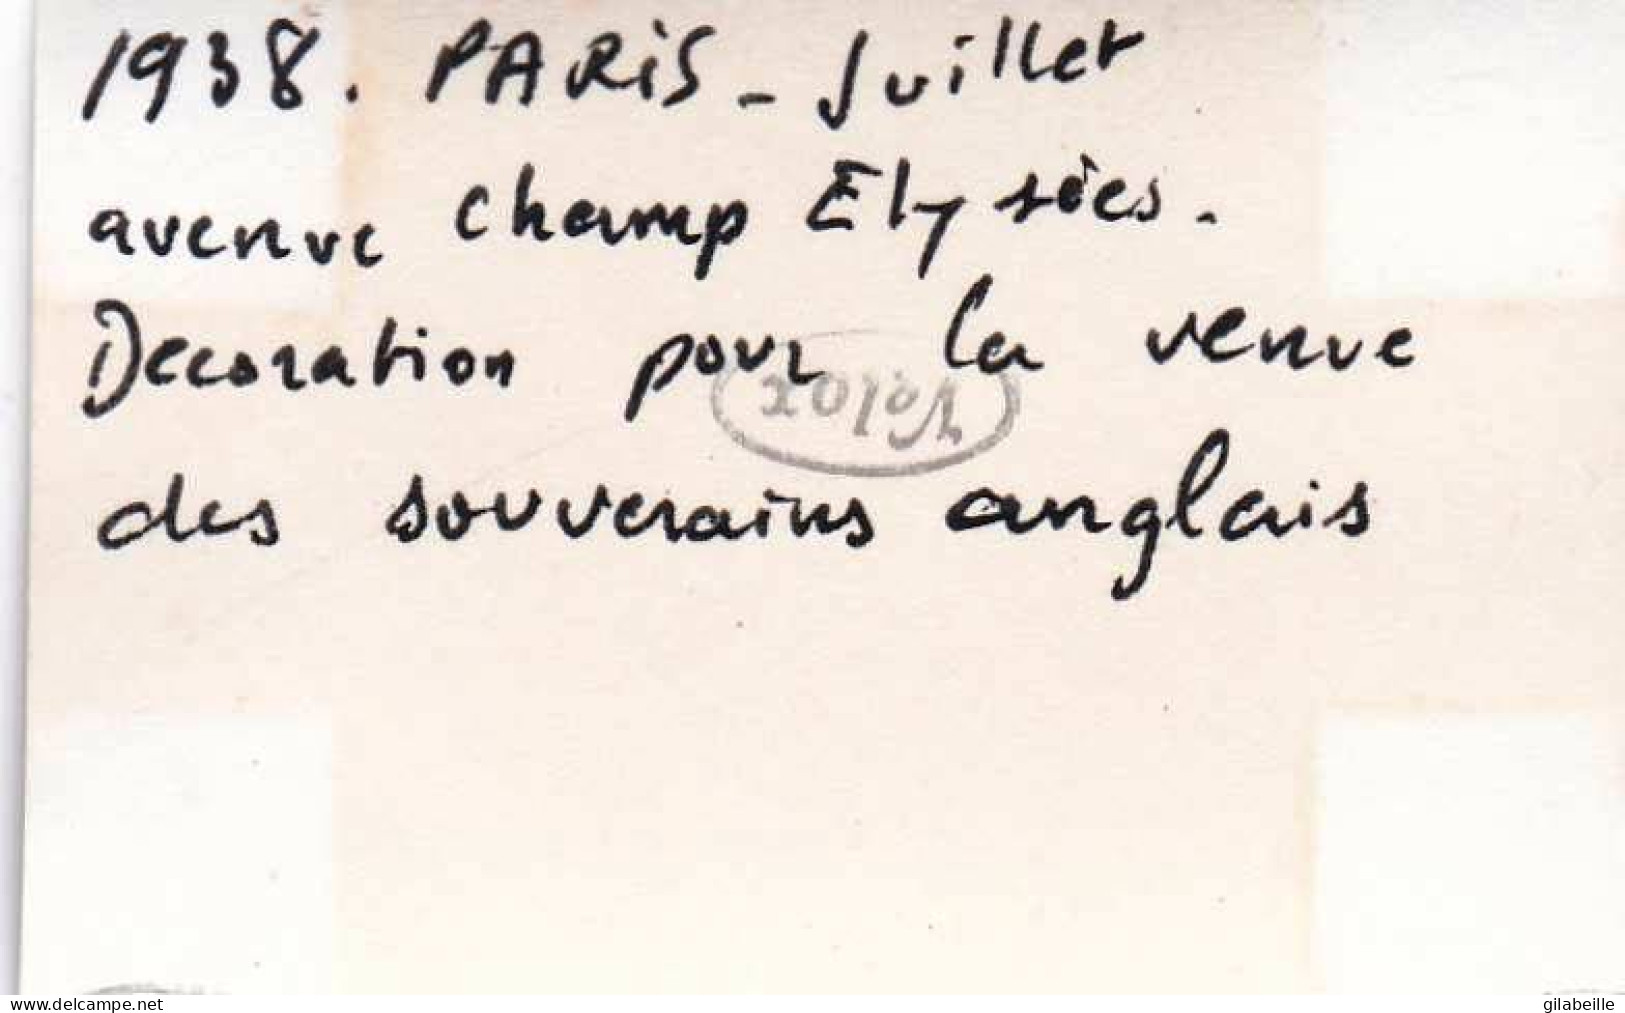 1938. PARIS - Juillet
avenue champ Elysées.
Decoration pour la venue
Velox
des souverains anglais
delcampe.net
gilabeille